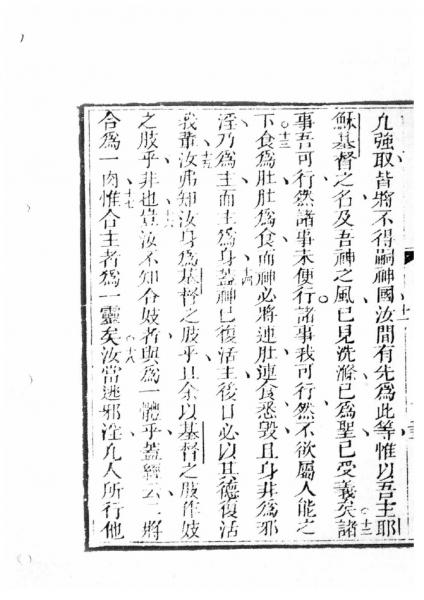 凡強取皆將不得嗣神國汝間有先為此等惟以吾主耶
十一
穌基督之名及吾神之風已見洗滌已為聖已受義矣諸
十二
事吾可行然諸事未便行諸事我可行然不欲屬人能之
下食為肚肚為食而神必將連肚連食悉毀且身非為邪
十三
淫乃為主而主為身蓋神已復活主後日必以其德復活
十四
我輩汝弗知汝身為基督之肢乎且余以基督之肢作妓
十五
之肢乎非也豈汝不知合妓者與為一體乎蓋經云二將
十六
合為一肉惟合主者為一靈矣汝當逃邪淫凡人所行他
十七
十八